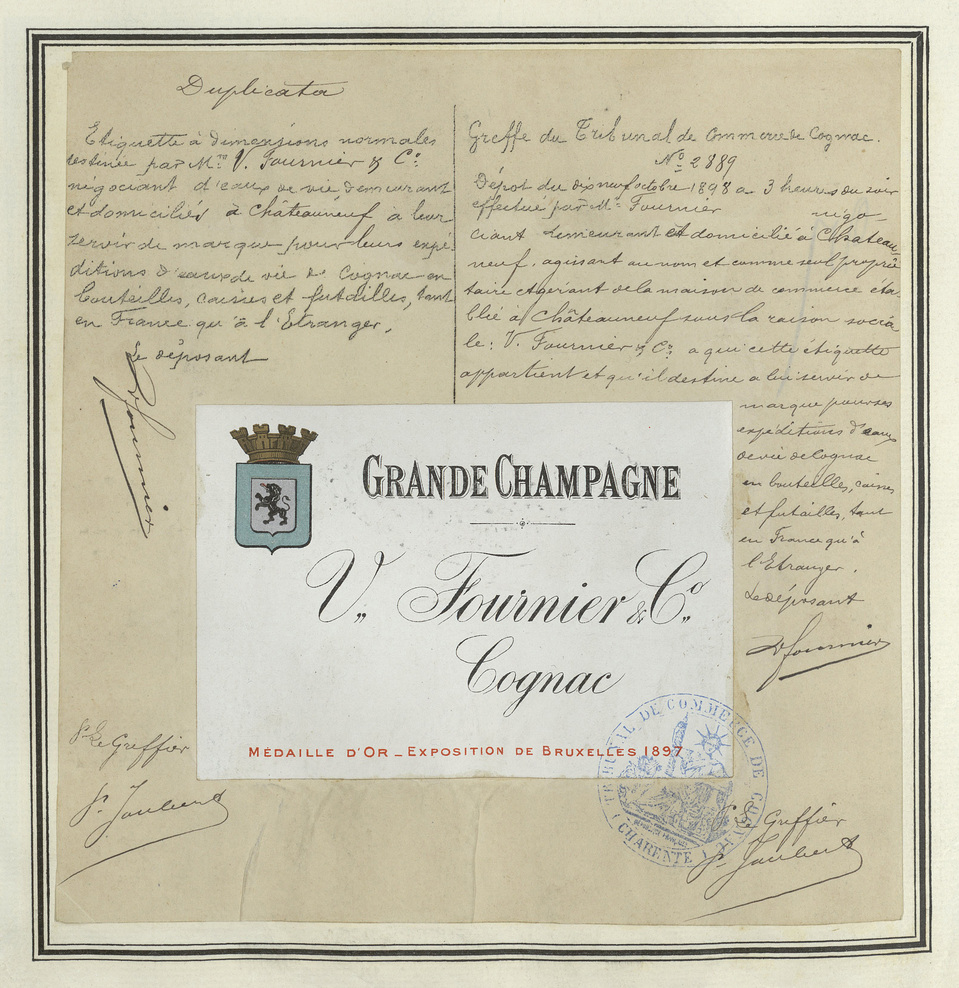 Duplicata
Etiquette à dimensions normales
destinée par Mrs V. Fournier & Co
négociant d'eaux de vie demeurant
et domiciliés à Châteauneuf à leur
servir de marque pour leurs expé-
ditions d'eaux de vie de Cognac en
bouteilles, caisses et futailles, tant
en France qu'à l'Etranger.
Le déposant
V Fournier
Greffe du Tribunal de Commerce de Cognac.
No 2889
Dépot du dix neuf octobre 1898 a 3 heures du soir
effectué par Mr Fournier négo-
ciant demeurant et domicilié à Chateau-
neuf, agisant au nom et comme seul proprié
taire et gérant de la maison de commerce éta-
blie a Châteauneuf sous la raison socia
le: V. Fournier & Co a qui cette étiquette
appartient et qu'il destine a lui servir de
marque pour ses
expéditions d'eaux
de vie de Cognac
en bouteilles, caisses
et futailles, tant
en France qu'à
l'Etranger.
Le déposant
V Fournier
GRANDE CHAMPAGNE
V. Fournier & Co.
Cognac
MÉDAILLE D'OR _ EXPOSITION DE BRUXELLES 1897
TRIBUNAL DE COMMERCE DE COGNAC
(CHARENTE)
Le Greffier
P. Joubert
Le Greffier
P. Joubert